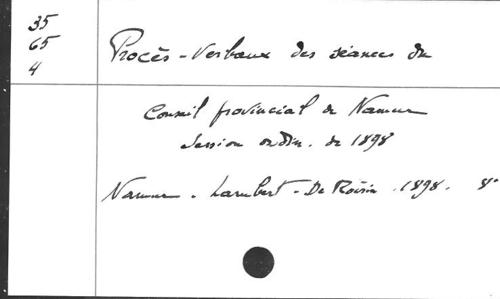 35
65
4
Procès-Verbaux des séances du
Conseil provincial de Namur
Session ordin. de 1898
Namur. Lambert-De Roisin. 1898. 8°